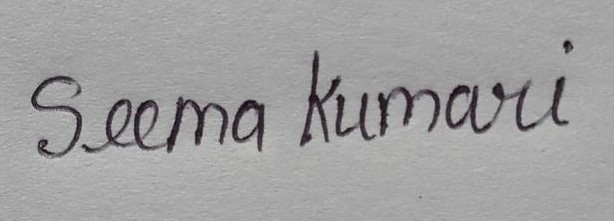 Seema Kumari